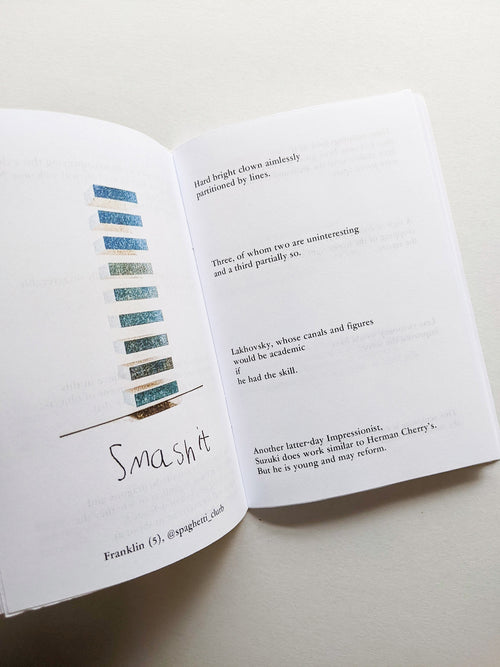 Smash it
Franklin (5), @spaghetti_club
Hard bright clown aimlessly
partitioned by lines.
Three, of whom two are uninteresting
and a third partially so.
Lakhovsky, whose canals and figures
would be academic
if
he had the skill.
Another latter-day Impressionist,
Suzuki does work similar to Herman Cherry's.
But he is young and may reform.